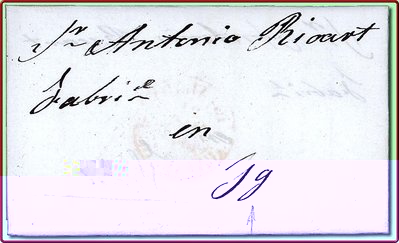 Sr Antonio Ricart
Fabrite
en
Jg